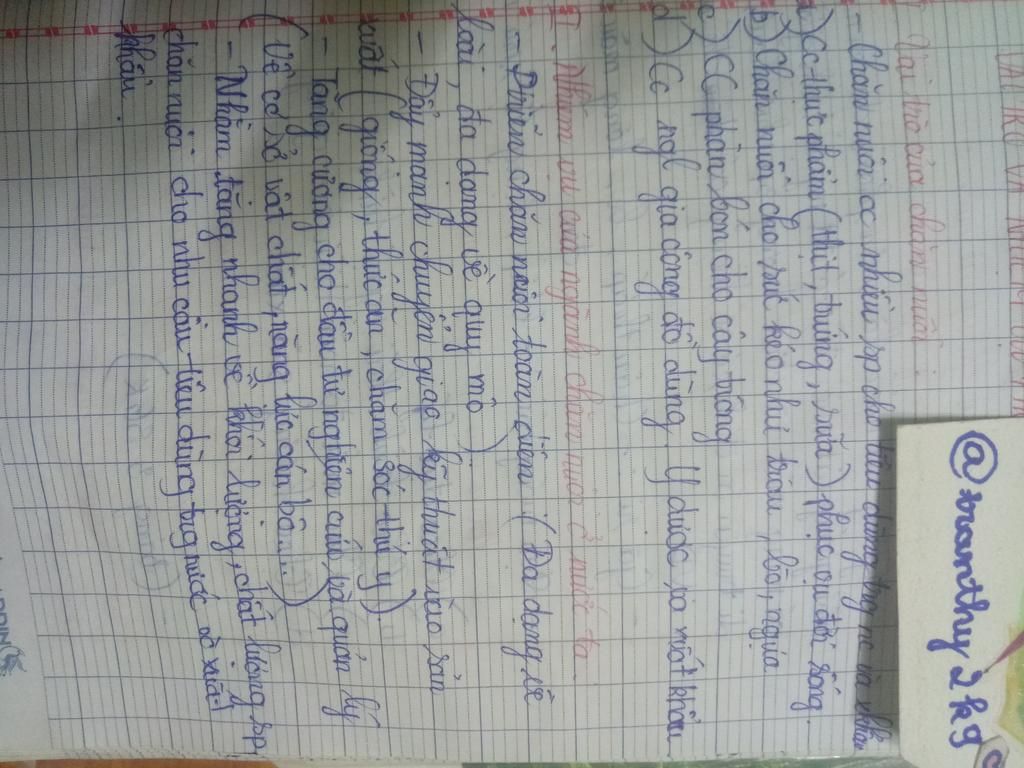 VAI TRÒ VÀ NHIỆM
Vai trò của chăn nuôi
- Chăn nuôi cc nhiều sp cho tiêu dùng trg nc và xkhẩu
a) Cc thực phẩm (thịt, trứng, sữa) phục vụ đời sống.
b) Chăn nuôi cho sức kéo như trâu, bò, ngựa
c) CC phân bón cho cây trồng
d) Cc ngl gia công đồ dùng. Y dược và xuất khẩu
II. Nhiệm vụ của ngành chăn nuôi ở nước ta
- Ptriển chăn nuôi toàn diện. (Đa dạng về
loài, đa dạng về quy mô)
- Đẩy mạnh chuyển giao kỹ thuật vào sản
xuất (giống, thức ăn, chăm sóc - thú y)
- Tăng cường cho đầu tư nghiên cứu và quản lý
(Về cơ sở vật chất, năng lực cán bộ...)
- Nhằm tăng nhanh về khối lượng, chất lượng sp
chăn nuôi cho nhu cầu tiêu dùng trg nước và xuất
khẩu.
@tranthy2kg